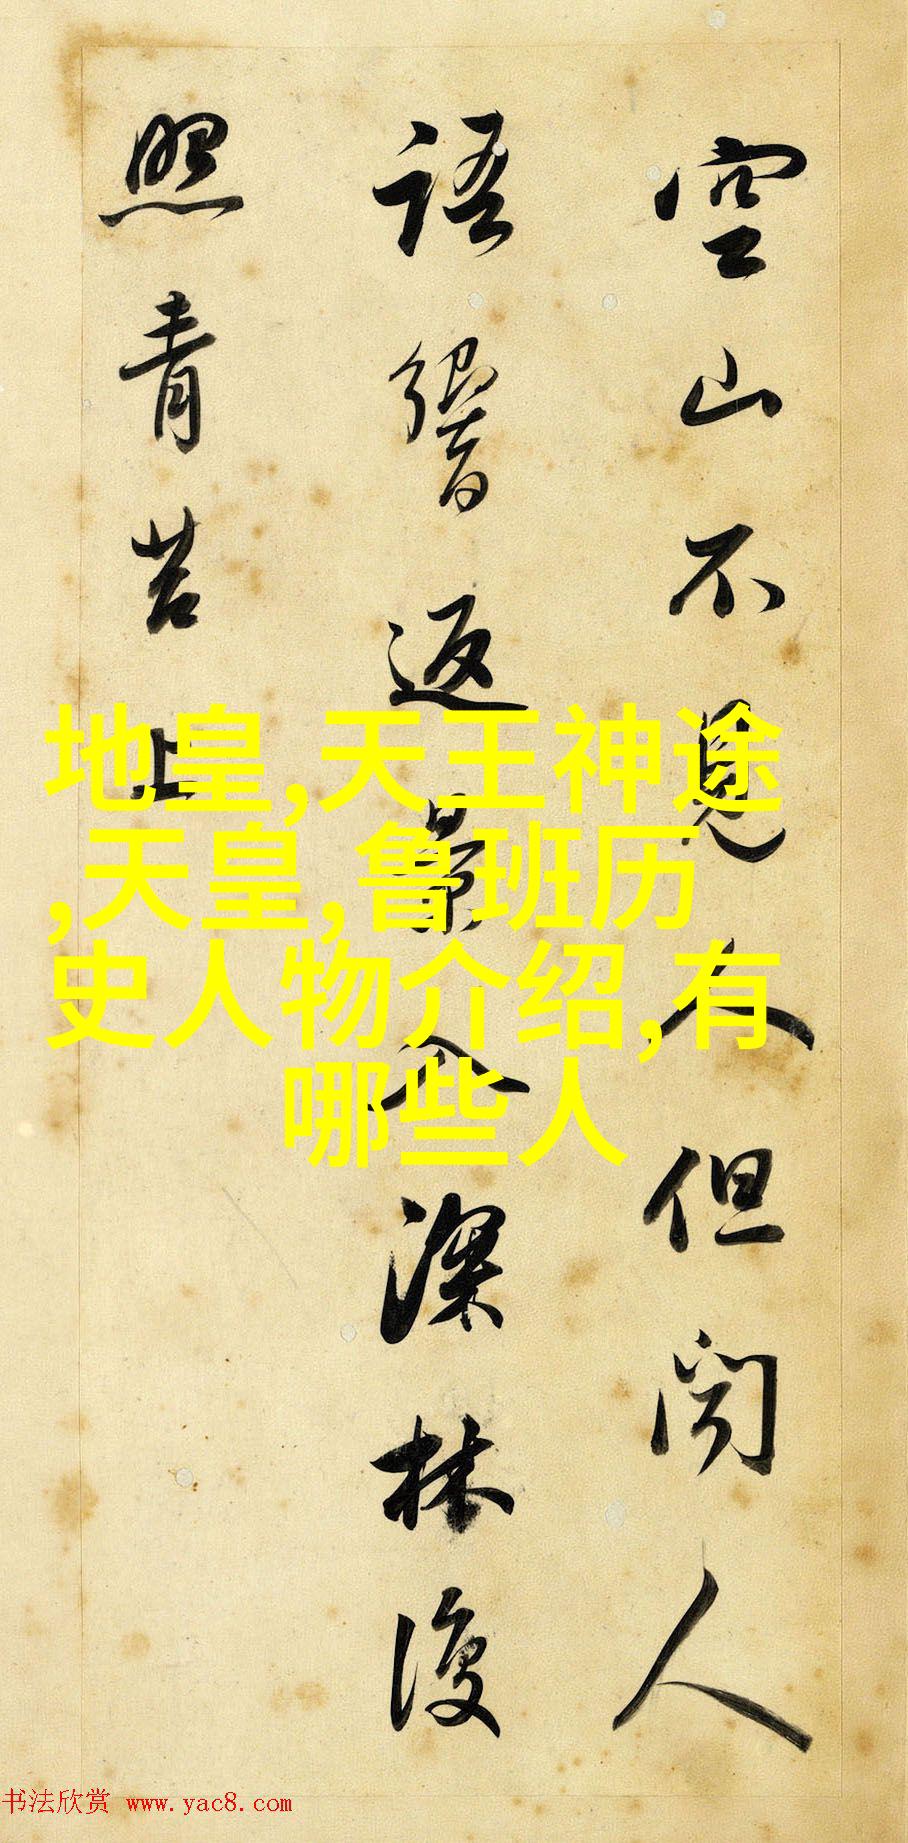 空山不見人但闻人
語響返景入深林復
照青苔上
地皇,天王神途
,天皇,鲁班历
史人物介绍,有
哪些人
书法欣赏 www.yac8.com